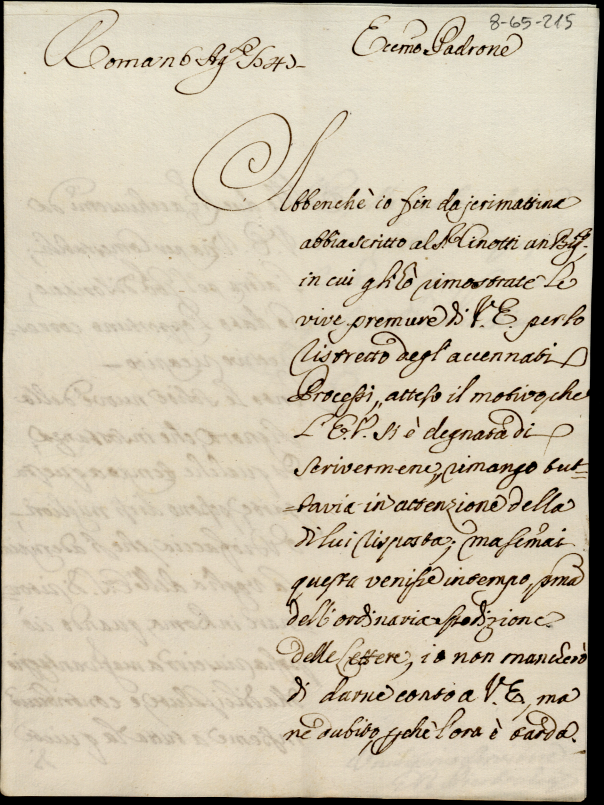 8-65-215
Eccmo Padrone
Roma 6 Agto
Abbenchè io fin da jerimattina
abbia scritto al Sr Linotti
in cui gli hò rimostrate le
vive premure di V. E. per lo
ristretto degl' accennati
Processi, atteso il motivo che
l'E. V. si è degnata di
scrivermene, rimango tut=
=tavia in attenzione della
di lui risposta; ma se mai
questa venisse in tempo, pma
dell'ordinaria spedizione
delle lettere, io non mancherò
di darne conto a V. E., ma
ne dubito, pchè l'ora è tarda.